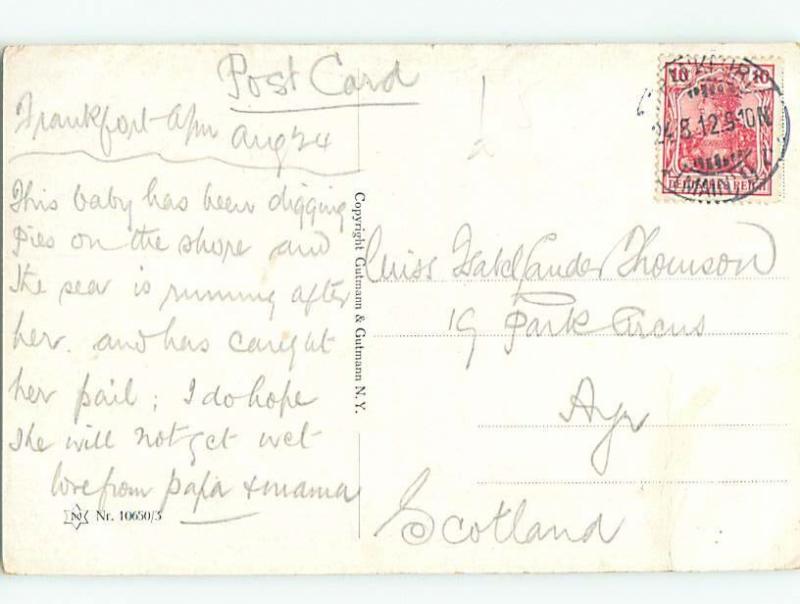 Post Card
Frankfort-a/m Aug 24
This baby has been digging
pies on the shore and
the sea is running after
her. and has caught
her pail; I do hope
she will not get wet
love from papa & mama
Nr. 10650/3
Copyright Gutmann & Gutmann N. Y.
10 10
24.8.12.9-10N
DEUTSCHES REICH
Miss Isabel Thomson
19 Park Circus
Ayr
Scotland